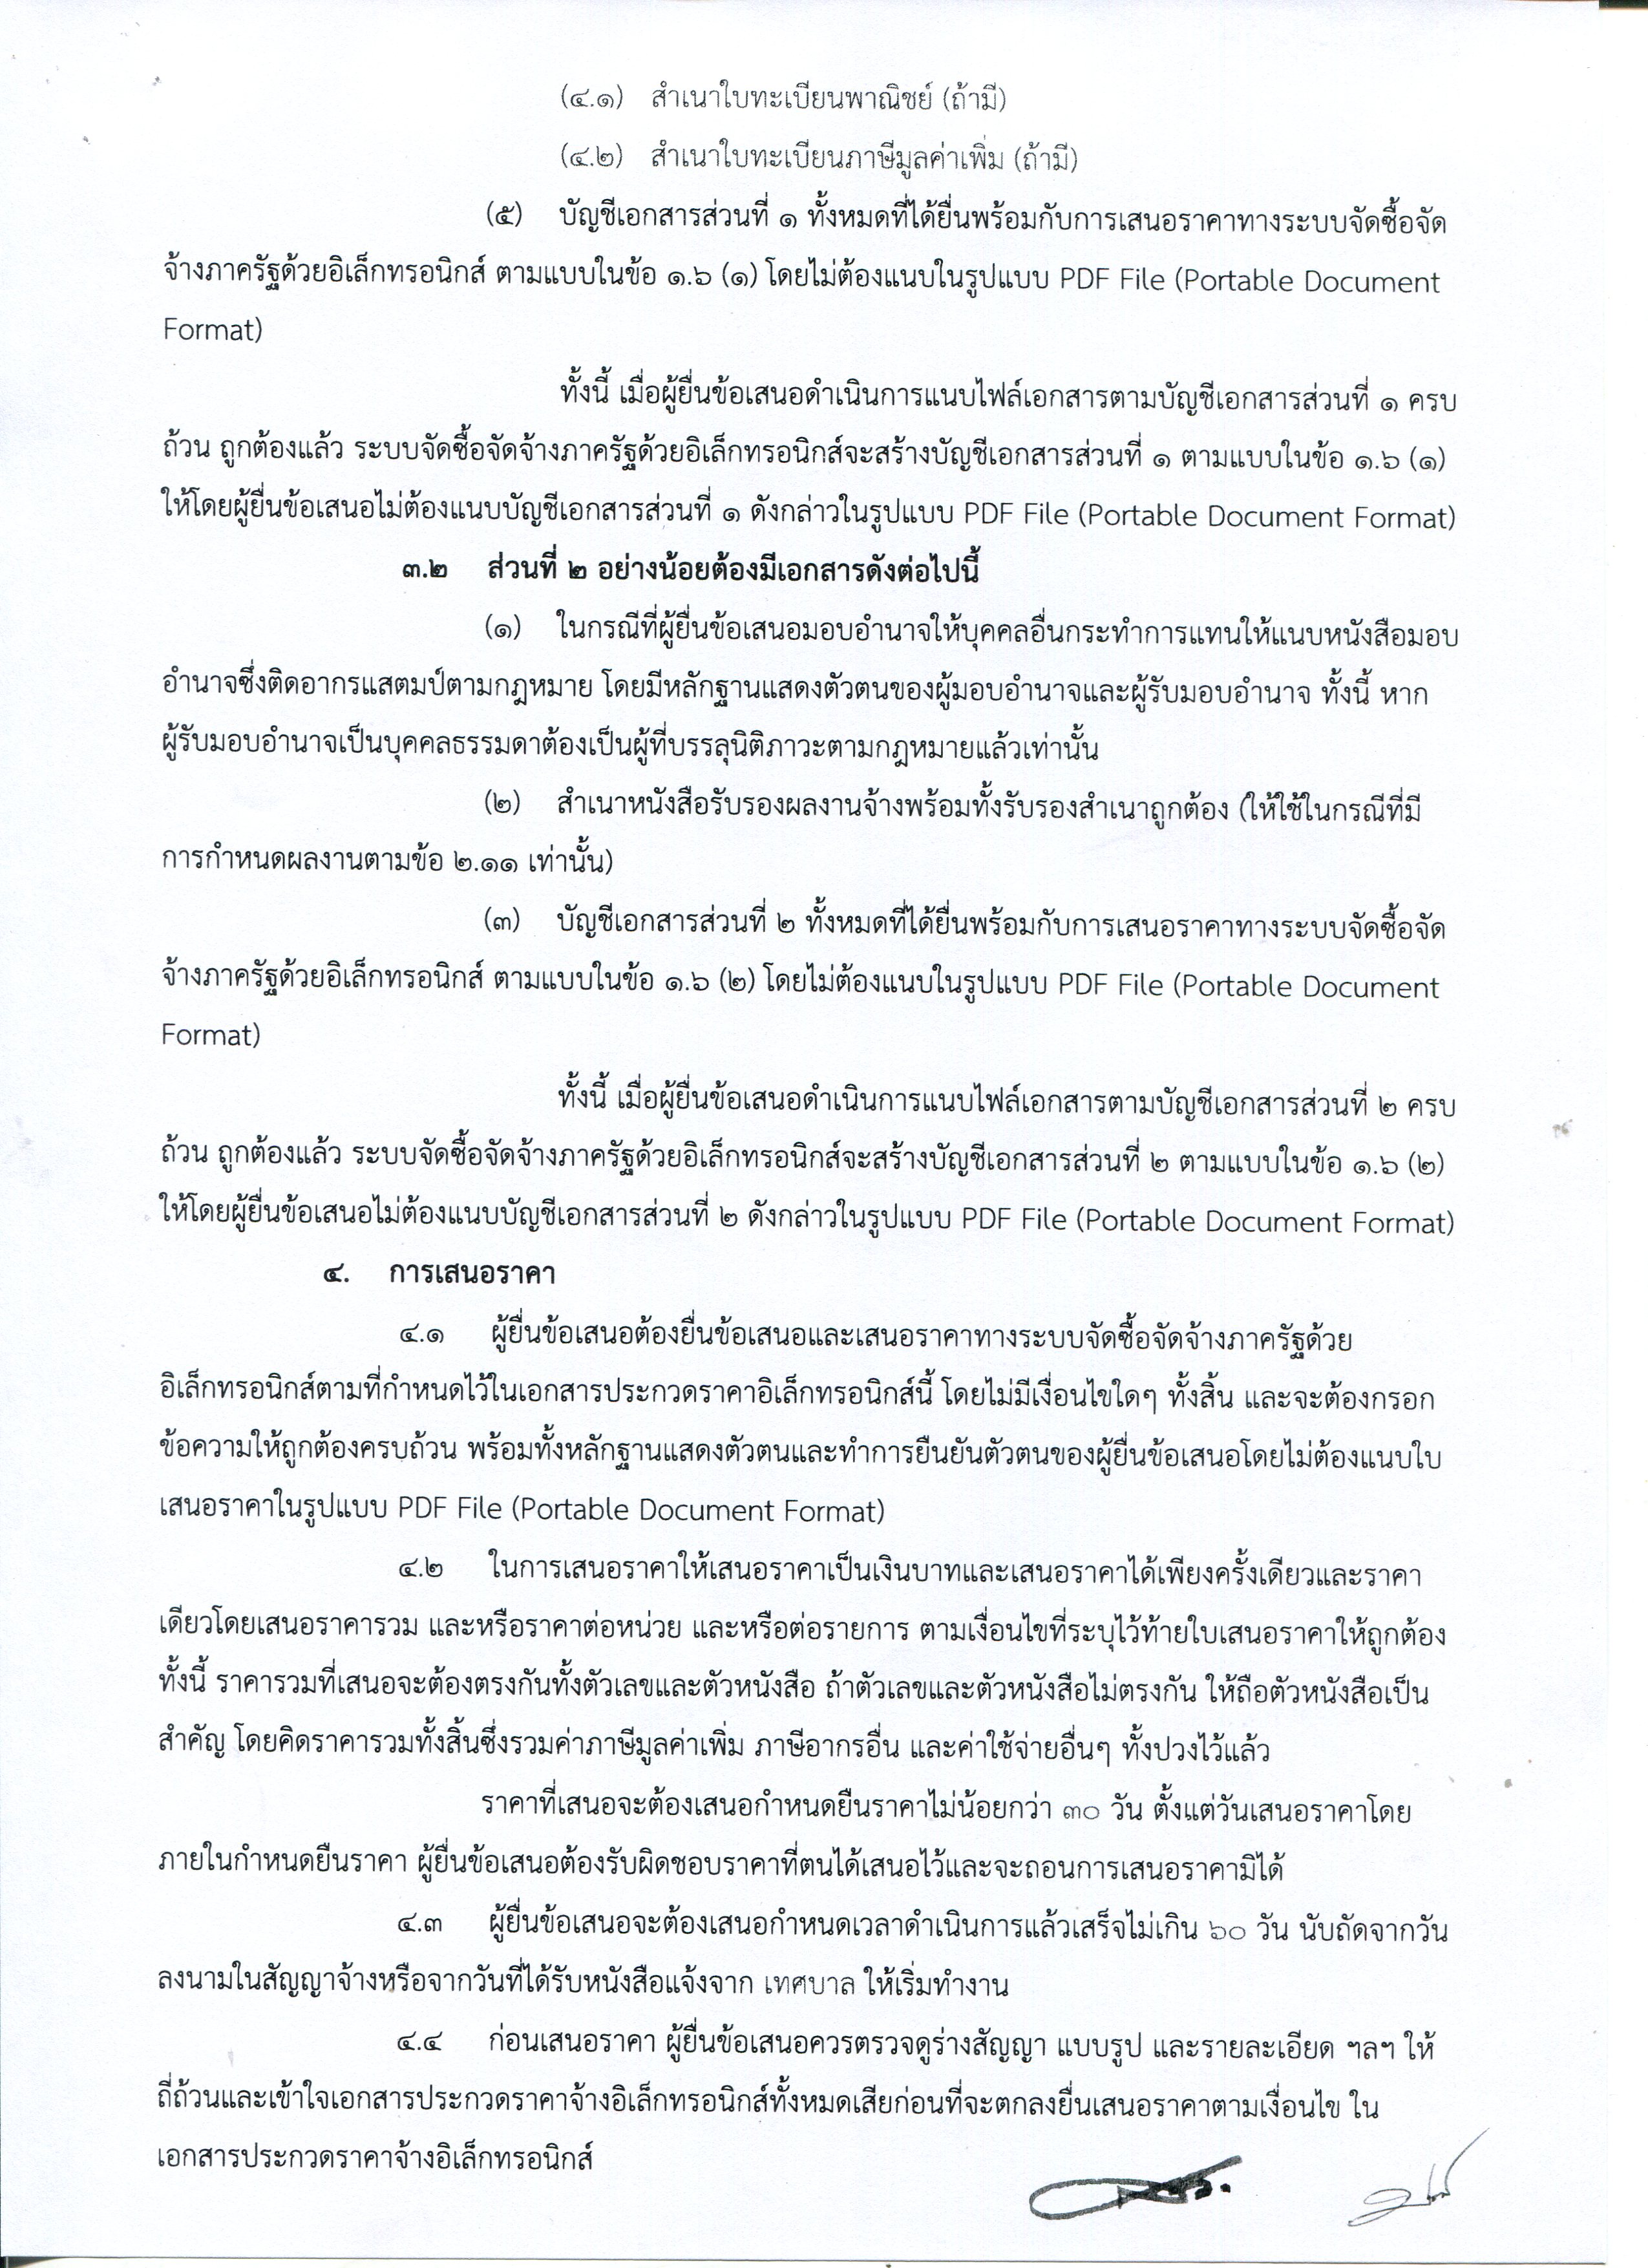 (๔.๑) สำเนาใบทะเบียนพาณิชย์ (ถ้ามี)
(๔.๒) สำเนาใบทะเบียนภาษีมูลค่าเพิ่ม (ถ้ามี)
(๕) บัญชีเอกสารส่วนที่ ๑ ทั้งหมดที่ได้ยื่นพร้อมกับการเสนอราคาทางระบบจัดซื้อจัด
จ้างภาครัฐด้วยอิเล็กทรอนิกส์ ตามแบบในข้อ ๑.๖ (๑) โดยไม่ต้องแนบในรูปแบบ PDF File (Portable Document
Format)
ทั้งนี้ เมื่อผู้ยื่นข้อเสนอดำเนินการแนบไฟล์เอกสารตามบัญชีเอกสารส่วนที่ ๑ ครบ
ถ้วน ถูกต้องแล้ว ระบบจัดซื้อจัดจ้างภาครัฐด้วยอิเล็กทรอนิกส์จะสร้างบัญชีเอกสารส่วนที่ ๑ ตามแบบในข้อ ๑.๖ (๑)
ให้โดยผู้ยื่นข้อเสนอไม่ต้องแนบบัญชีเอกสารส่วนที่ ๑ ดังกล่าวในรูปแบบ PDF File (Portable Document Format)
๓.๒ ส่วนที่ ๒ อย่างน้อยต้องมีเอกสารดังต่อไปนี้
(๑) ในกรณีที่ผู้ยื่นข้อเสนอมอบอำนาจให้บุคคลอื่นกระทำการแทนให้แนบหนังสือมอบ
อำนาจซึ่งติดอากรแสตมป์ตามกฎหมาย โดยมีหลักฐานแสดงตัวตนของผู้มอบอำนาจและผู้รับมอบอำนาจ ทั้งนี้ หาก
ผู้รับมอบอำนาจเป็นบุคคลธรรมดาต้องเป็นผู้ที่บรรลุนิติภาวะตามกฎหมายแล้วเท่านั้น
(๒) สำเนาหนังสือรับรองผลงานจ้างพร้อมทั้งรับรองสำเนาถูกต้อง (ให้ใช้ในกรณีที่มี
การกำหนดผลงานตามข้อ ๒.๑๑ เท่านั้น)
(๓) บัญชีเอกสารส่วนที่ ๒ ทั้งหมดที่ได้ยื่นพร้อมกับการเสนอราคาทางระบบจัดซื้อจัด
จ้างภาครัฐด้วยอิเล็กทรอนิกส์ ตามแบบในข้อ ๑.๖ (๒) โดยไม่ต้องแนบในรูปแบบ PDF File (Portable Document
Format)
ทั้งนี้ เมื่อผู้ยื่นข้อเสนอดำเนินการแนบไฟล์เอกสารตามบัญชีเอกสารส่วนที่ ๒ ครบ
ถ้วน ถูกต้องแล้ว ระบบจัดซื้อจัดจ้างภาครัฐด้วยอิเล็กทรอนิกส์จะสร้างบัญชีเอกสารส่วนที่ ๒ ตามแบบในข้อ ๑.๖ (๒)
ให้โดยผู้ยื่นข้อเสนอไม่ต้องแนบบัญชีเอกสารส่วนที่ ๒ ดังกล่าวในรูปแบบ PDF File (Portable Document Format)
๔. การเสนอราคา
๔.๑ ผู้ยื่นข้อเสนอต้องยื่นข้อเสนอและเสนอราคาทางระบบจัดซื้อจัดจ้างภาครัฐด้วย
อิเล็กทรอนิกส์ตามที่กำหนดไว้ในเอกสารประกวดราคาอิเล็กทรอนิกส์นี้ โดยไม่มีเงื่อนไขใดๆ ทั้งสิ้น และจะต้องกรอก
ข้อความให้ถูกต้องครบถ้วน พร้อมทั้งหลักฐานแสดงตัวตนและทำการยืนยันตัวตนของผู้ยื่นข้อเสนอโดยไม่ต้องแนบใบ
เสนอราคาในรูปแบบ PDF File (Portable Document Format)
๔.๒ ในการเสนอราคาให้เสนอราคาเป็นเงินบาทและเสนอราคาได้เพียงครั้งเดียวและราคา
เดียวโดยเสนอราคารวม และหรือราคาต่อหน่วย และหรือต่อรายการ ตามเงื่อนไขที่ระบุไว้ท้ายใบเสนอราคาให้ถูกต้อง
ทั้งนี้ ราคารวมที่เสนอจะต้องตรงกันทั้งตัวเลขและตัวหนังสือ ถ้าตัวเลขและตัวหนังสือไม่ตรงกัน ให้ถือตัวหนังสือเป็น
สำคัญ โดยคิดราคารวมทั้งสิ้นซึ่งรวมค่าภาษีมูลค่าเพิ่ม ภาษีอากรอื่น และค่าใช้จ่ายอื่นๆ ทั้งปวงไว้แล้ว
ราคาที่เสนอจะต้องเสนอกำหนดยืนราคาไม่น้อยกว่า ๓๐ วัน ตั้งแต่วันเสนอราคาโดย
ภายในกำหนดยืนราคา ผู้ยื่นข้อเสนอต้องรับผิดชอบราคาที่ตนได้เสนอไว้และจะถอนการเสนอราคามิได้
๔.๓ ผู้ยื่นข้อเสนอจะต้องเสนอกำหนดเวลาดำเนินการแล้วเสร็จไม่เกิน ๖๐ วัน นับถัดจากวัน
ลงนามในสัญญาจ้างหรือจากวันที่ได้รับหนังสือแจ้งจาก เทศบาล ให้เริ่มทำงาน
๔.๔ ก่อนเสนอราคา ผู้ยื่นข้อเสนอควรตรวจดูร่างสัญญา แบบรูป และรายละเอียด ฯลฯ ให้
ถี่ถ้วนและเข้าใจเอกสารประกวดราคาจ้างอิเล็กทรอนิกส์ทั้งหมดเสียก่อนที่จะตกลงยื่นเสนอราคาตามเงื่อนไข ใน
เอกสารประกวดราคาจ้างอิเล็กทรอนิกส์